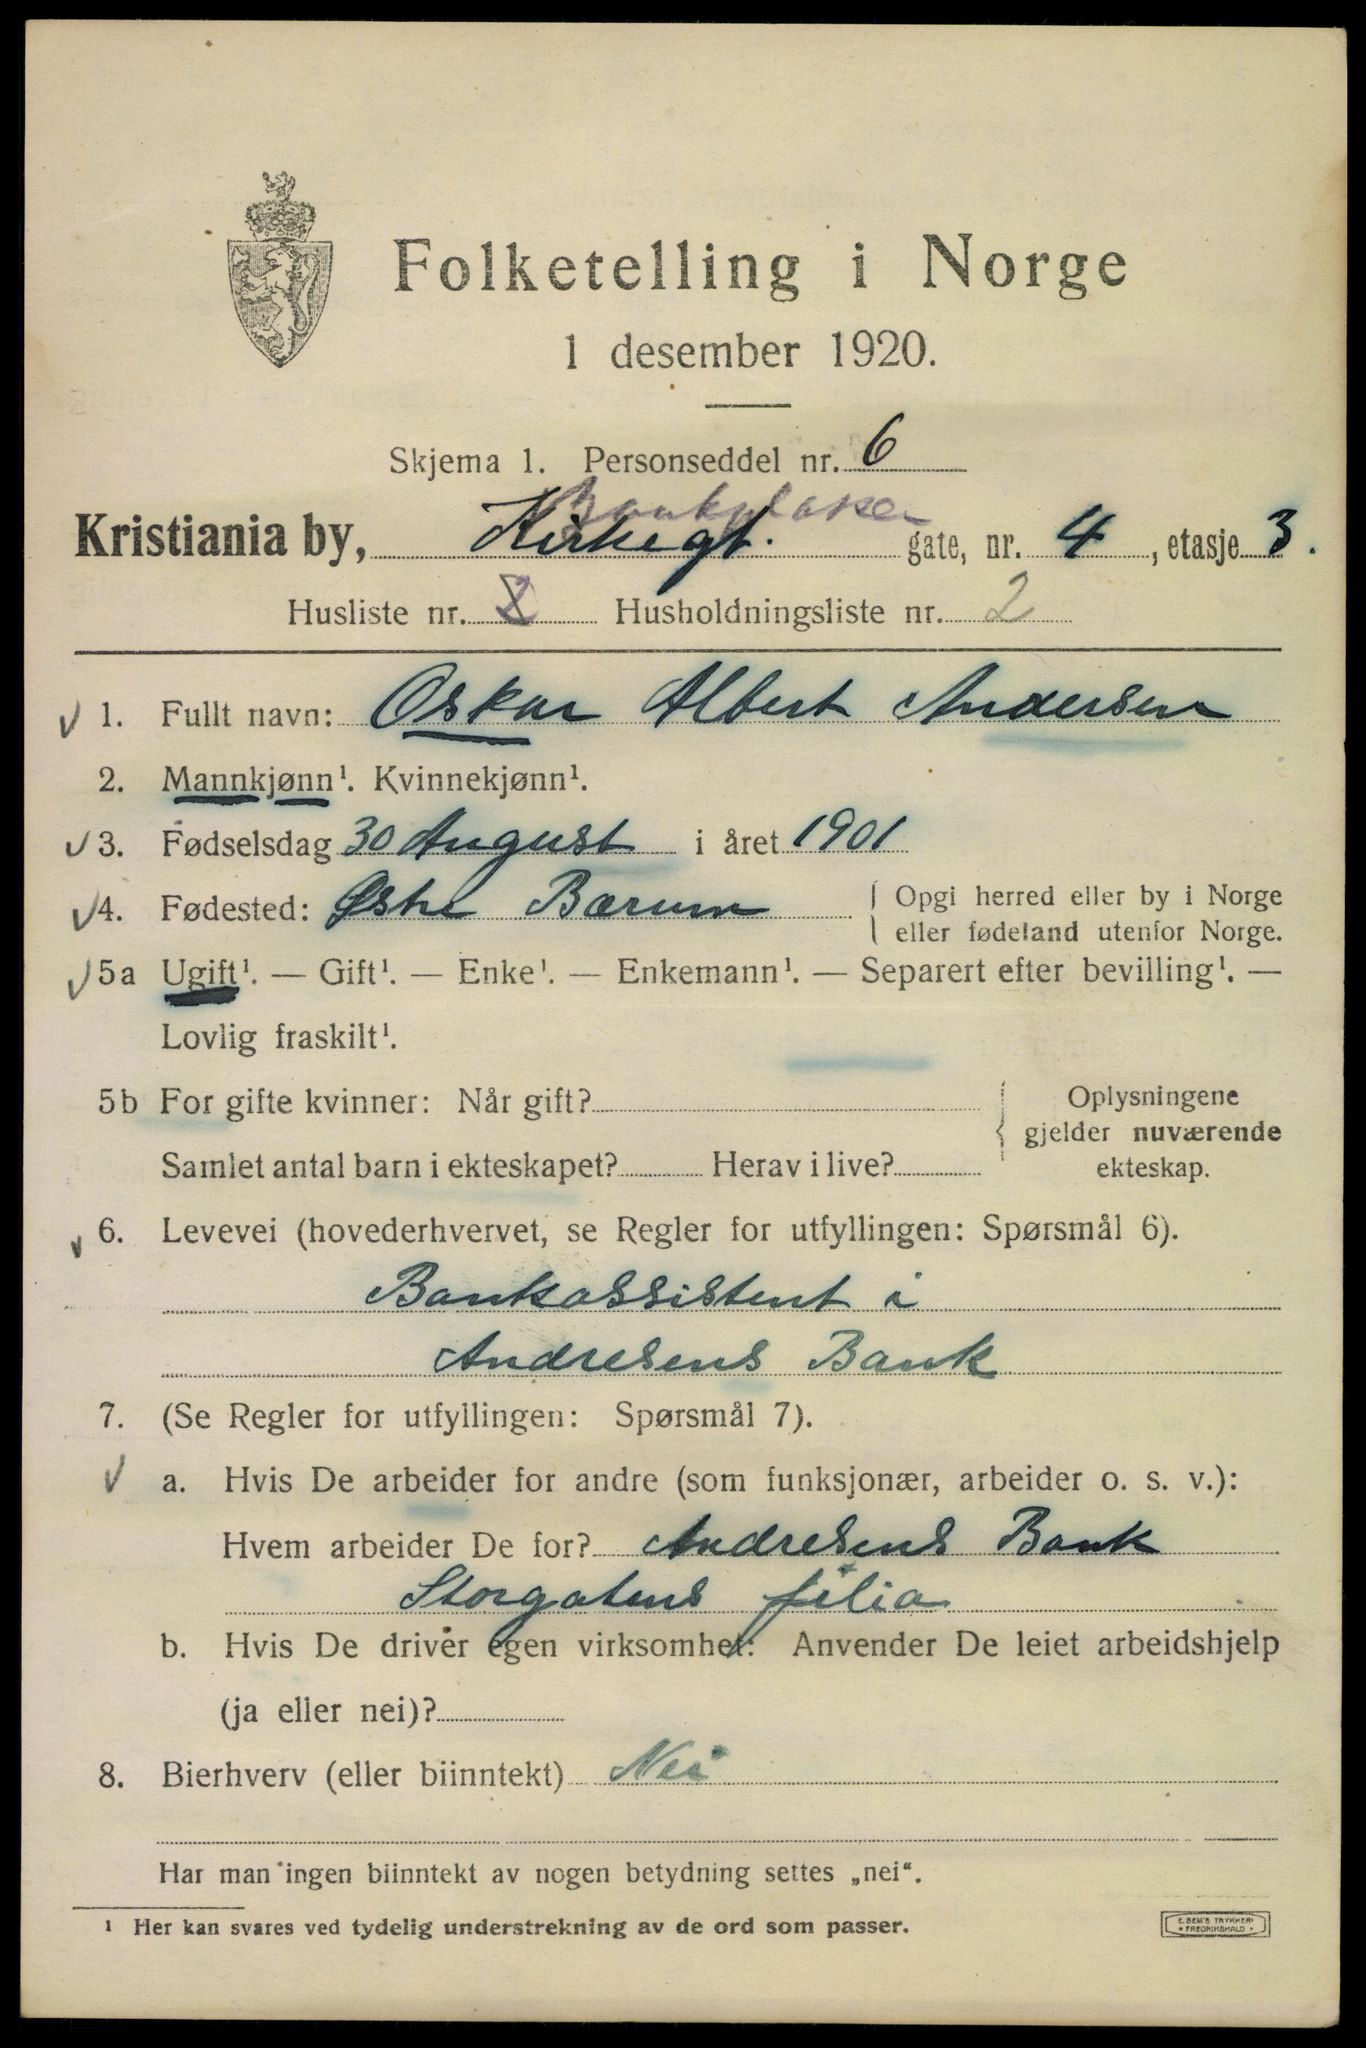 Folketelling i Norge
1 desember 1920.
Skjema 1. Personseddel nr. 6
Bankplassen
Kristiania by, Kirkegt. gate, nr. 4, etasje 3.
Husliste nr. Husholdningsliste nr. 2
1. Fullt navn: Oskar Albert Andersen
2. Mannkjønn¹. Kvinnekjønn¹.
3. Fødselsdag 30 August i året 1901
4. Fødested: Østre Bærum { Opgi herred eller by i Norge
eller fødeland utenfor Norge.
5a Ugift¹. — Gift¹. — Enke¹. — Enkemann¹. — Separert efter bevilling¹. —
Lovlig fraskilt¹.
5b For gifte kvinner: Når gift? { Oplysningene
gjelder nuværende
Samlet antal barn i ekteskapet? Herav i live? ekteskap.
6. Levevei (hovederhvervet, se Regler for utfyllingen: Spørsmål 6).
Bankassistent i
Andresens Bank
7. (Se Regler for utfyllingen: Spørsmål 7).
a. Hvis De arbeider for andre (som funksjonær, arbeider o. s. v.):
Hvem arbeider De for? Andresens Bank
Storgatens filia
b. Hvis De driver egen virksomhet: Anvender De leiet arbeidshjelp
(ja eller nei)?
8. Bierhverv (eller biinntekt) Nei
Har man ingen biinntekt av nogen betydning settes „nei“.
¹ Her kan svares ved tydelig understrekning av de ord som passer.
E. SEM'S TRYKKERI
FREDRIKSHALD